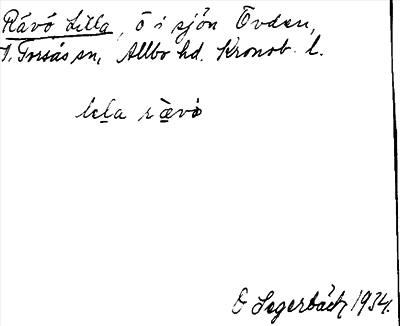 Rävö, Lilla, ö i sjön Övden,
V. Torsås sn, Allbo hd. Kronob. l.
lila rävö
O Segerbäck 1934.